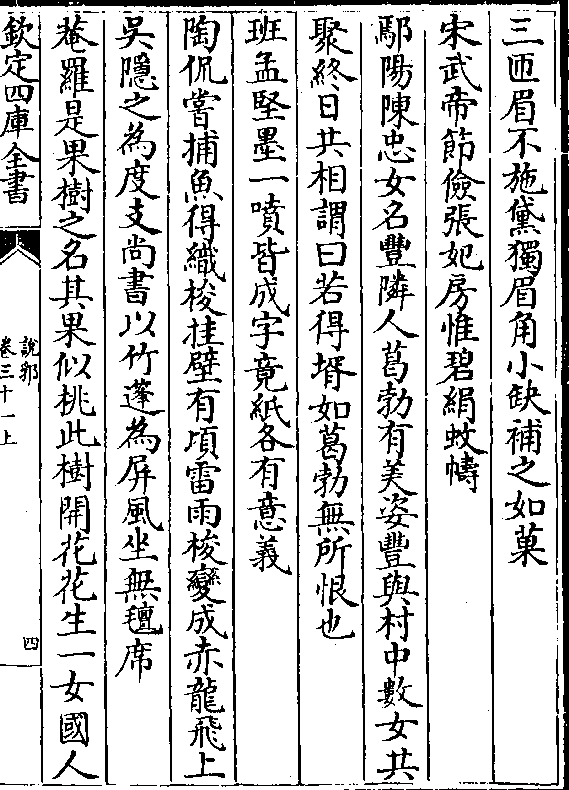 三匝眉不施黛獨眉角小缺補之如菓
宋武帝節儉張妃房惟碧絹蚊幬
鄢陽陳忠女名豐隣人葛勃有美姿豐與村中數女共
聚終日共相謂曰若得壻如葛勃無所恨也
班孟堅墨一噴皆成字竟紙各有意義
陶侃嘗捕魚得織梭挂壁有頃雷雨梭變成赤龍飛上
吳隱之為度支尚書以竹蓬為屏風坐無氊席
菴羅是果樹之名其果似桃此樹開花花生一女國人
欽定四庫全書
說郛
卷三十一上
四